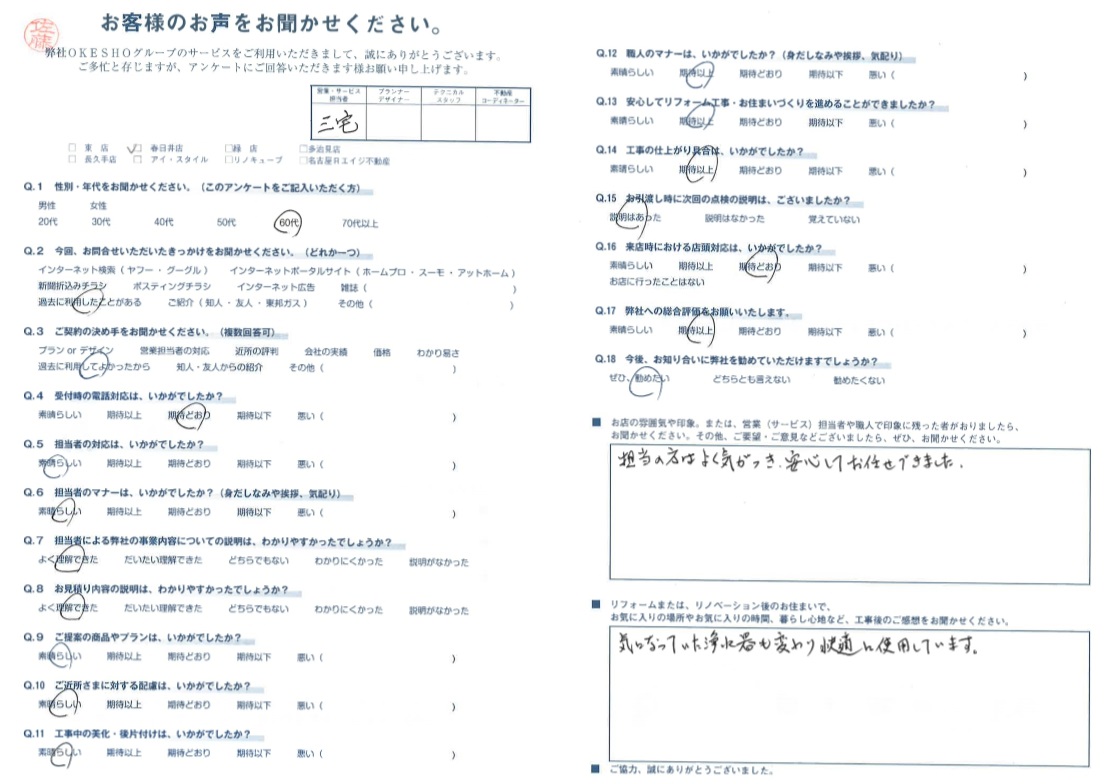 お客様のお声をお聞かせください。
佐藤
弊社OKESHOグループのサービスをご利用いただきまして、誠にありがとうございます。
ご多忙と存じますが、アンケートにご回答いただきます様お願い申し上げます。
営業・サービス担当者 プランナーデザイナー テクニカルスタッフ 不動産コーディネーター
三宅
□ 東 店 ☑ 春日井店 □緑 店 □多治見店
□ 長久手店 □ アイ・スタイル □リノキューブ □名古屋Rエイジ不動産
Q.1 性別・年代をお聞かせください。（このアンケートをご記入いただく方）
男性 女性
20代 30代 40代 50代 60代 70代以上
Q.2 今回、お問合せいただいたきっかけをお聞かせください。（どれか一つ）
インターネット検索（ ヤフー ・ グーグル ） インターネットポータルサイト（ ホームプロ ・ スーモ ・ アットホーム ）
新聞折込みチラシ ポスティングチラシ インターネット広告 雑誌（ ）
過去に利用したことがある ご紹介（ 知人 ・ 友人 ・ 東邦ガス ） その他（ ）
Q.3 ご契約の決め手をお聞かせください。（複数回答可）
プラン or デザイン 営業担当者の対応 近所の評判 会社の実績 価格 わかり易さ
過去に利用してよかったから 知人・友人からの紹介 その他（ ）
Q.4 受付時の電話対応は、いかがでしたか？
素晴らしい 期待以上 期待どおり 期待以下 悪い（ ）
Q.5 担当者の対応は、いかがでしたか？
素晴らしい 期待以上 期待どおり 期待以下 悪い（ ）
Q.6 担当者のマナーは、いかがでしたか？（身だしなみや挨拶、気配り）
素晴らしい 期待以上 期待どおり 期待以下 悪い（ ）
Q.7 担当者による弊社の事業内容についての説明は、わかりやすかったでしょうか？
よく理解できた だいたい理解できた どちらでもない わかりにくかった 説明がなかった
Q.8 お見積り内容の説明は、わかりやすかったでしょうか？
よく理解できた だいたい理解できた どちらでもない わかりにくかった 説明がなかった
Q.9 ご提案の商品やプランは、いかがでしたか？
素晴らしい 期待以上 期待どおり 期待以下 悪い（ ）
Q.10 ご近所さまに対する配慮は、いかがでしたか？
素晴らしい 期待以上 期待どおり 期待以下 悪い（ ）
Q.11 工事中の美化・後片付けは、いかがでしたか？
素晴らしい 期待以上 期待どおり 期待以下 悪い（ ）
Q.12 職人のマナーは、いかがでしたか？（身だしなみや挨拶、気配り）
素晴らしい 期待以上 期待どおり 期待以下 悪い（ ）
Q.13 安心してリフォーム工事・お住まいづくりを進めることができましたか？
素晴らしい 期待以上 期待どおり 期待以下 悪い（ ）
Q.14 工事の仕上がり具合は、いかがでしたか？
素晴らしい 期待以上 期待どおり 期待以下 悪い（ ）
Q.15 お引渡し時に次回の点検の説明は、ございましたか？
説明はあった 説明はなかった 覚えていない
Q.16 来店時における店頭対応は、いかがでしたか？
素晴らしい 期待以上 期待どおり 期待以下 悪い（ ）
お店に行ったことはない
Q.17 弊社への総合評価をお願いいたします。
素晴らしい 期待以上 期待どおり 期待以下 悪い（ ）
Q.18 今後、お知り合いに弊社を勧めていただけますでしょうか？
ぜひ、勧めたい どちらとも言えない 勧めたくない
■ お店の雰囲気や印象。または、営業（サービス）担当者や職人で印象に残った者がおりましたら、
お聞かせください。その他、ご要望・ご意見などございましたら、ぜひ、お聞かせください。
担当の方はよく気がつき、安心してお任せできました。
■ リフォームまたは、リノベーション後のお住まいで、
お気に入りの場所やお気に入りの時間、暮らし心地など、工事後のご感想をお聞かせください。
気になっていた浄水器も変わり快適に使用しています。
■ ご協力、誠にありがとうございました。